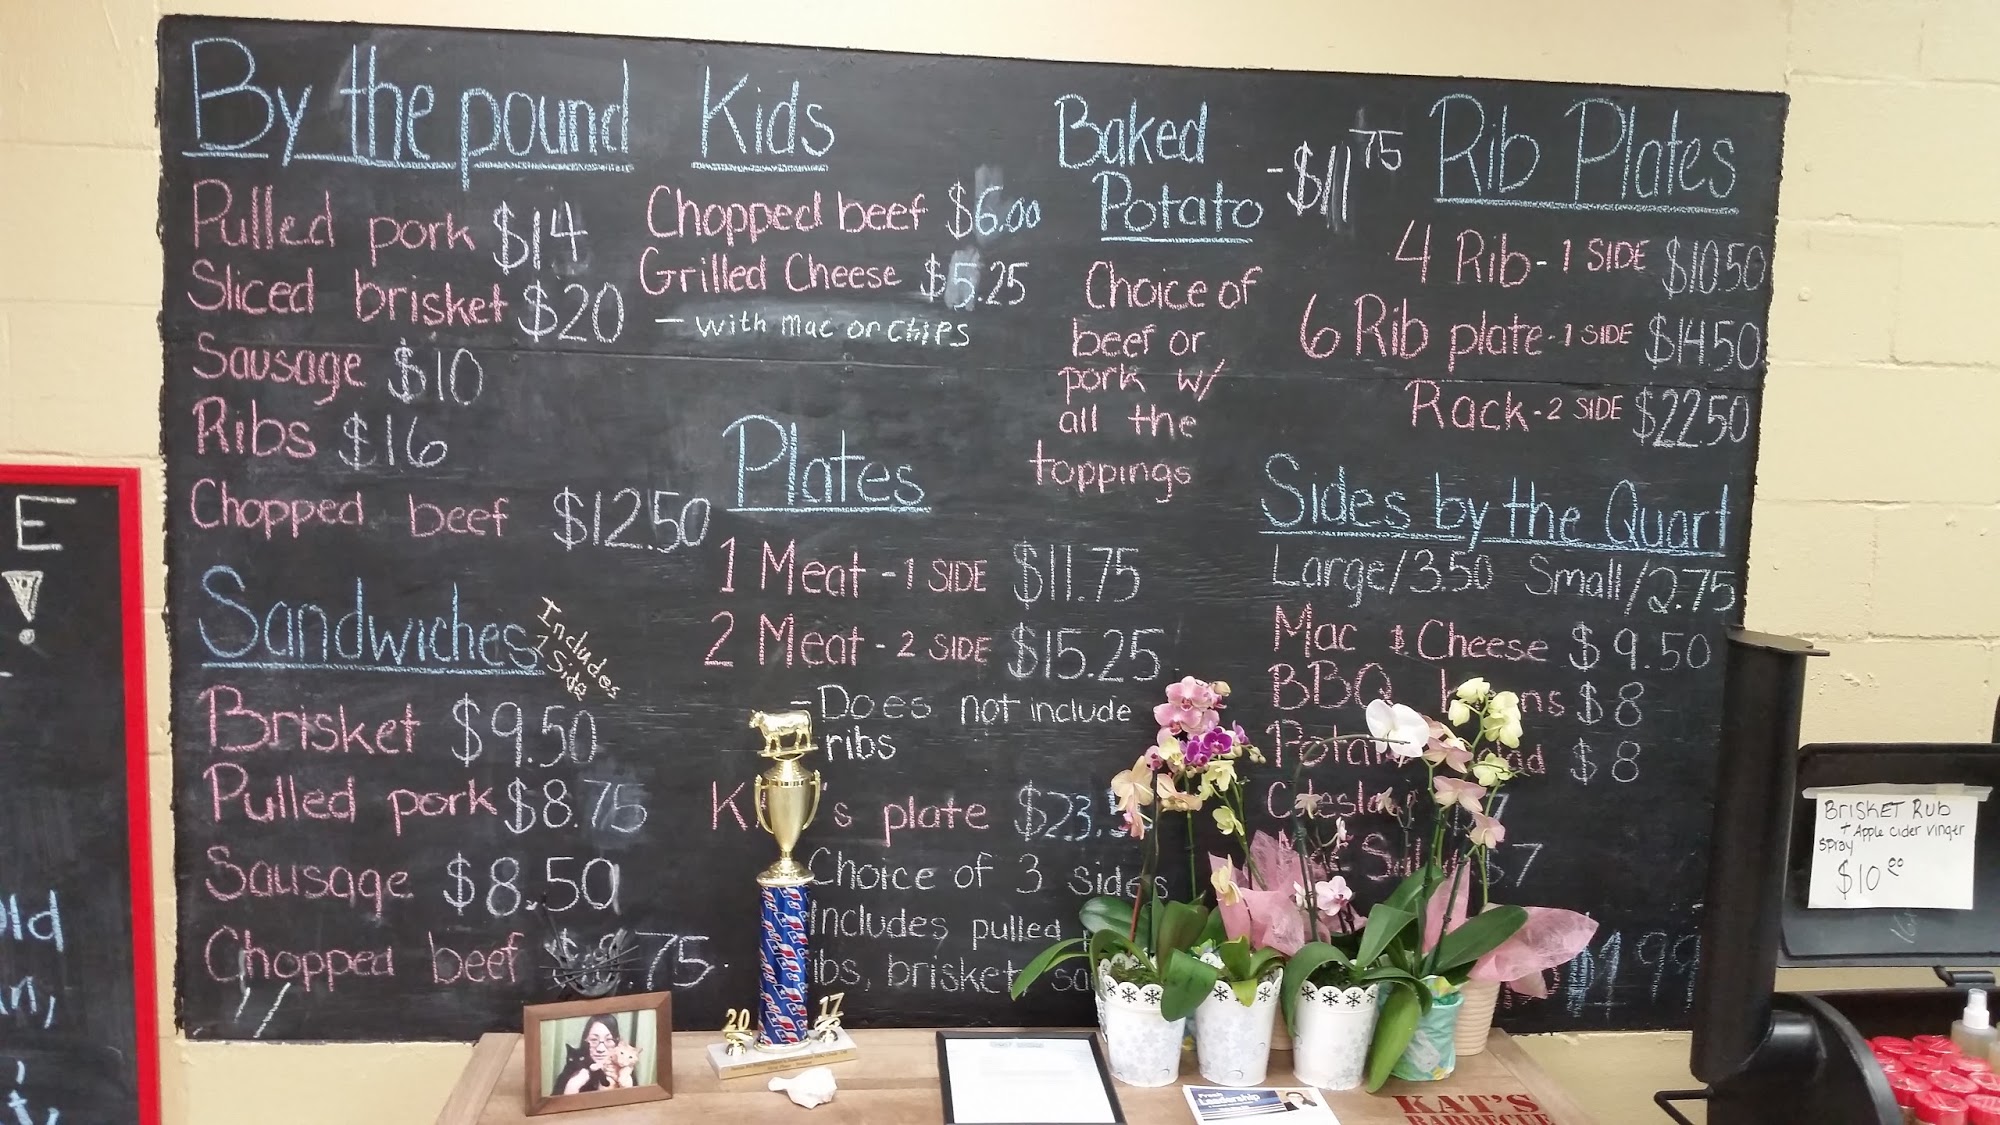 By the pound
Pulled pork $14
Sliced brisket $20
Sausage $10
Ribs $16
Chopped beef $12.50
Sandwiches
Includes
1 Side
Brisket $9.50
Pulled pork $8.75
Sausage $8.50
Chopped beef .75
Kids
Chopped beef $6.00
Grilled Cheese $5.25
- with Mac or Chips
Plates
1 Meat - 1 SIDE $11.75
2 Meat - 2 SIDE $15.25
- Does not include
ribs
plate
Choice of 3 sides
includes pulled
brisket,
Baked
Potato - $11.75
Choice of
beef or
pork w/
all the
toppings
Rib Plates
4 Rib - 1 SIDE $10.50
6 Rib plate - 1 SIDE $14.50
Rack - 2 SIDE $22.50
Sides by the Quart
Large/3.50 Small/2.75
Mac & Cheese $9.50
BBQ $8
$8
$7
E
!
BRISKET RUB
+ Apple cider vinger
spray
$10.00
20 17
KAT'S
BARBECUE
Leadership